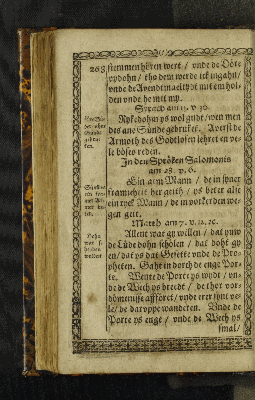 203 stemmen hören wert / vnde de Döre
vpdohn / tho dem werde ick ingahn /
vnde de Avendtmaeltydt mit em hol-
den vnde he mit my.
Syrach am 13. v 30.
Rykedohm ys wol gudt / wen men
des ane Sünde gebruket. Averst de
Armoth des Godtlosen lehret en ve-
le böses reden.
In den Spröken Salomonis
am 28. v. 6.
Ein arm Mann / de in syner
framicheit her geith / ys beter alse
ein ryck Mann / de in vorkerden we-
gen geit.
Matth am 7. v. 12.
Allent wat gy willen / dat yuw
de Lüde dohn schölen / dat doht gy
en / dat ys dat Gesette vnde de Pro-
pheten. Gahet in dorch de enge Por-
te. Wente de Porte ys widt / vn-
de de Wech ys breedt / de thor vor-
dömenisse afföret / vnde erer synt ve-
le / de daruppe wanderen. Vnde de
Porte ys enge / vnde de Wech ys
smal /